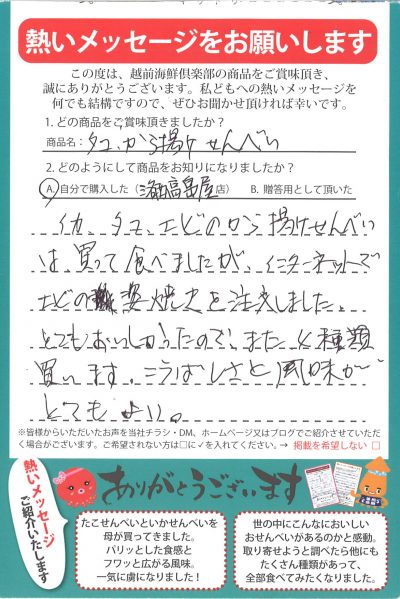 熱いメッセージをお願いします
この度は、越前海鮮倶楽部の商品をご賞味頂き、
誠にありがとうございます。私どもへの熱いメッセージを
何でも結構ですので、ぜひお聞かせ頂ければ幸いです。
1. どの商品をご賞味頂きましたか?
商品名: タコ、から揚げせんべい
2. どのようにして商品をお知りになりましたか?
A. 自分で購入した (
高島屋店) B. 贈答用として頂いた
イカ、タコ、エビのから揚げせんべい
は、買って食べましたが、インターネットで
エビの姿焼きを注文しました。
とてもおいしかったので、また
種類
買います。こうばしさと風味が
とてもよい。
※皆様からいただいたお声を当社チラシ・DM、ホームページ又はブログでご紹介させていただ
く場合がございます。ご希望されない方は□に✓を入れてください。→ 掲載を希望しない □
熱いメッセージ
ご紹介いたします
ありがとうございます
たこせんべいといかせんべいを
母が買ってきました。
パリッとした食感と
フワッと広がる風味。
一気に虜になりました!
世の中にこんなにおいしい
おせんべいがあるのかと感動。
取り寄せようと調べたら他にも
たくさん種類があって、
全部食べてみたくなりました。